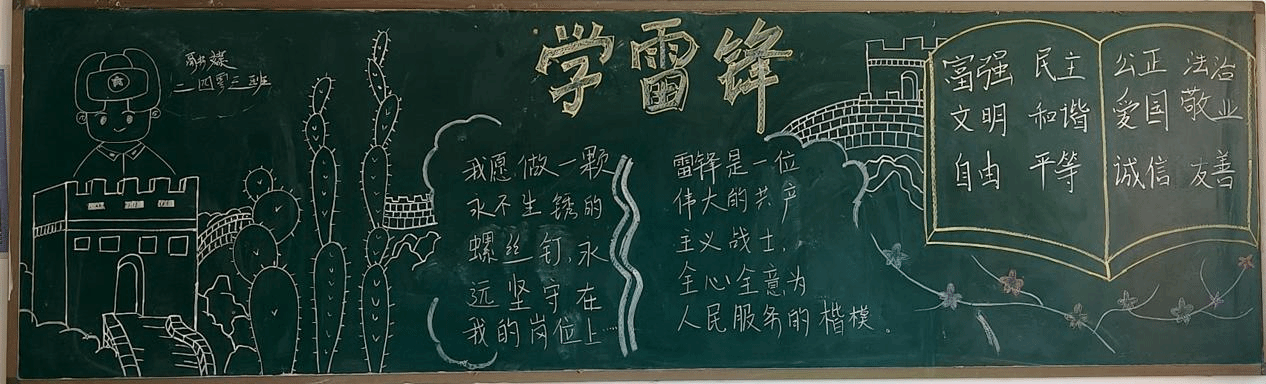 学雷锋
二四零三班
我愿做一颗
永不生锈的
螺丝钉，永
远坚守在
我的岗位上……
雷锋是一位
伟大的共产
主义战士，
全心全意为
人民服务的楷模。
富强 民主 公正 法治
文明 和谐 爱国 敬业
自由 平等 诚信 友善